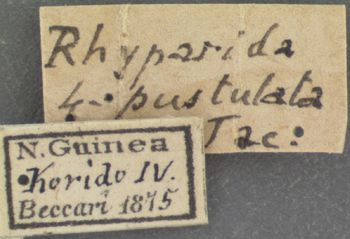 Rhyparida
4-pustulata
Jac.
N. Guinea
Korido IV.
Beccari 1875